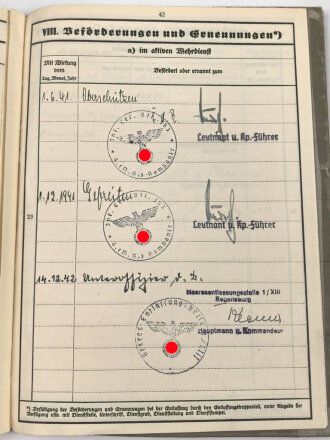 42
VIII. Beförderungen und Ernennungen*)
a) im aktiven Wehrdienst
Mit Wirkung
vom
Tag, Monat, Jahr
Befördert oder ernannt zum
1.6.41 Oberschützen
Leutnant u. Kp.-Führer
1.12.1941 Gefreiten
Leutnant u. Kp.-Führer
23
14.12.42 Unteroffizier d. R.
Heeresentlassungsstelle 1/XIII
Regensburg
Hauptmann u. Kommandeur
*) Bestätigung der Beförderungen und Ernennungen bei der Entlassung durch den Entlassungstruppenteil, unter Angabe der
Verfügung usw. mit Dienststelle, Unterschrift, Dienstgrad, Dienststellung und Dienststempel.